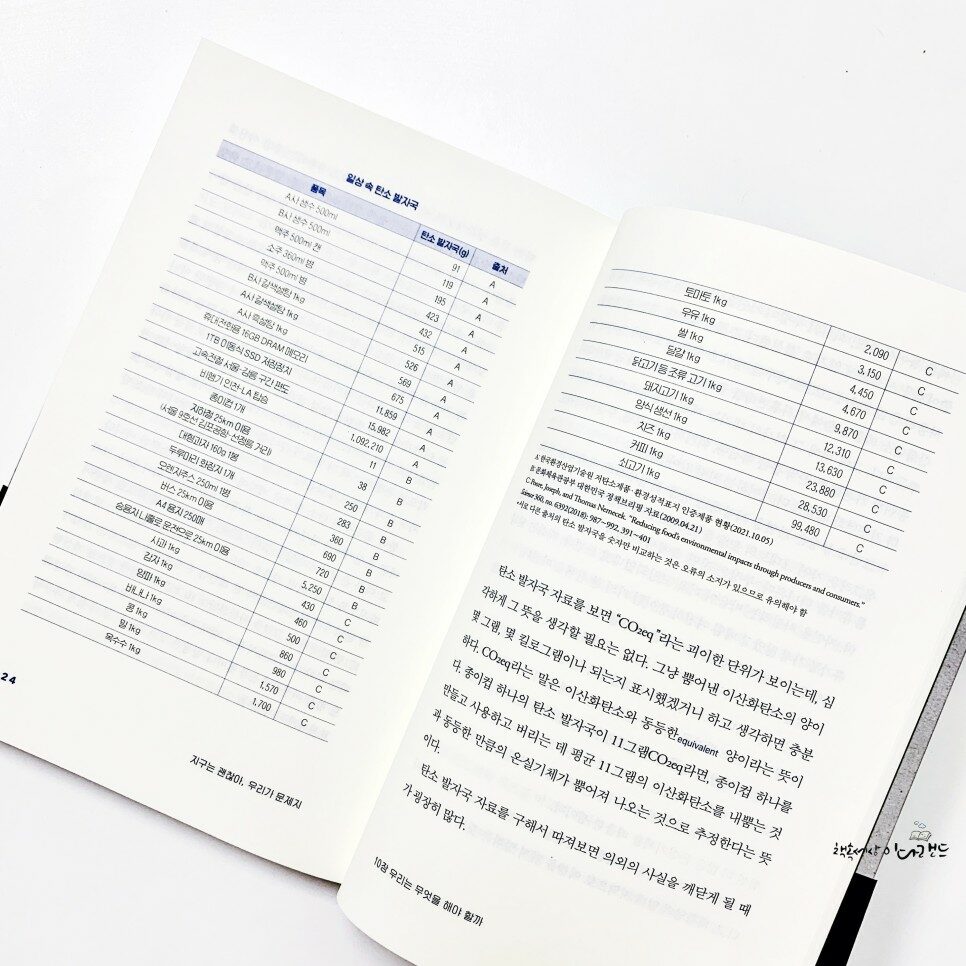 일상 속 탄소 발자국
품목 탄소 발자국(g) 출처
A사 생수 500ml 91 A
B사 생수 500ml 119 A
맥주 500ml 캔 195 A
소주 360ml 병 423 A
맥주 500ml 병 432 A
B사 갈색설탕 1kg 515 A
A사 갈색설탕 1kg 526 A
A사 흑설탕 1kg 569 A
휴대전화용 16GB DRAM 메모리 675 A
1TB 이동식 SSD 저장장치 11,859 A
고속전철 서울-강릉 구간 편도 15,982 A
비행기 인천-LA 탑승 1,092,210 A
종이컵 1개 11 B
지하철 25km 이용 38 B
(서울 9호선 김포공항-선정릉 거리)
대형과자 160g 1봉 250 B
두루마리 화장지 1개 283 B
오렌지주스 250ml 1병 360 B
버스 25km 이용 690 B
A4 용지 250매 720 B
승용차 나홀로 운전으로 25km 이동 5,250 B
사과 1kg 430 C
감자 1kg 460 C
양파 1kg 500 C
바나나 1kg 860 C
콩 1kg 980 C
밀 1kg 1,570 C
옥수수 1kg 1,700 C
24
지구는 괜찮아, 우리가 문제지
토마토 1kg 2,090 C
우유 1kg 3,150 C
쌀 1kg 4,450 C
달걀 1kg 4,670 C
닭고기 등 조류 고기 1kg 9,870 C
돼지고기 1kg 12,310 C
양식 생선 1kg 13,630 C
치즈 1kg 23,880 C
커피 1kg 28,530 C
쇠고기 1kg 99,480 C
A: 한국환경산업기술원 저탄소제품·환경성적표지 인증제품 현황(2021.10.05)
B: 문화체육관광부 대한민국 정책브리핑 자료(2009.04.21)
C: Poore, Joseph, and Thomas Nemecek. "Reducing food's environmental impacts through producers and consumers."
Science 360, no. 6392(2018): 987~992, 391~401
*서로 다른 출처의 탄소 발자국을 숫자만 비교하는 것은 오류의 소지가 있으므로 유의해야 함
탄소 발자국 자료를 보면 “CO₂eq ”라는 괴이한 단위가 보이는데, 심
각하게 그 뜻을 생각할 필요는 없다. 그냥 뿜어낸 이산화탄소의 양이
몇 그램, 몇 킬로그램이나 되는지 표시했겠거니 하고 생각하면 충분
하다. CO₂eq라는 말은 이산화탄소와 동등한equivalent 양이라는 뜻이
다. 종이컵 하나의 탄소 발자국이 11그램CO₂eq라면, 종이컵 하나를
만들고 사용하고 버리는 데 평균 11그램의 이산화탄소를 내뿜는 것
과 동등한 만큼의 온실기체가 뿜어져 나오는 것으로 추정한다는 뜻
이다.
탄소 발자국 자료를 구해서 따져보면 의외의 사실을 깨닫게 될 때
가 굉장히 많다.
10장 우리는 무엇을 해야 할까
책속세상 이너랜드